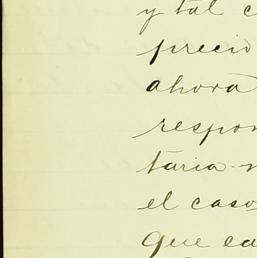 y tal c
precio
ahora
respon
taria
el caso
que ea